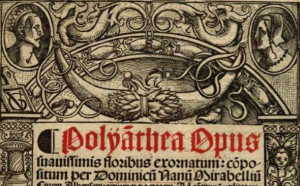 Polÿãthea Opus
suauissimis floribus exornatum: cõpo⸗
situm per Dominicũ Nanũ Mirabelliũ